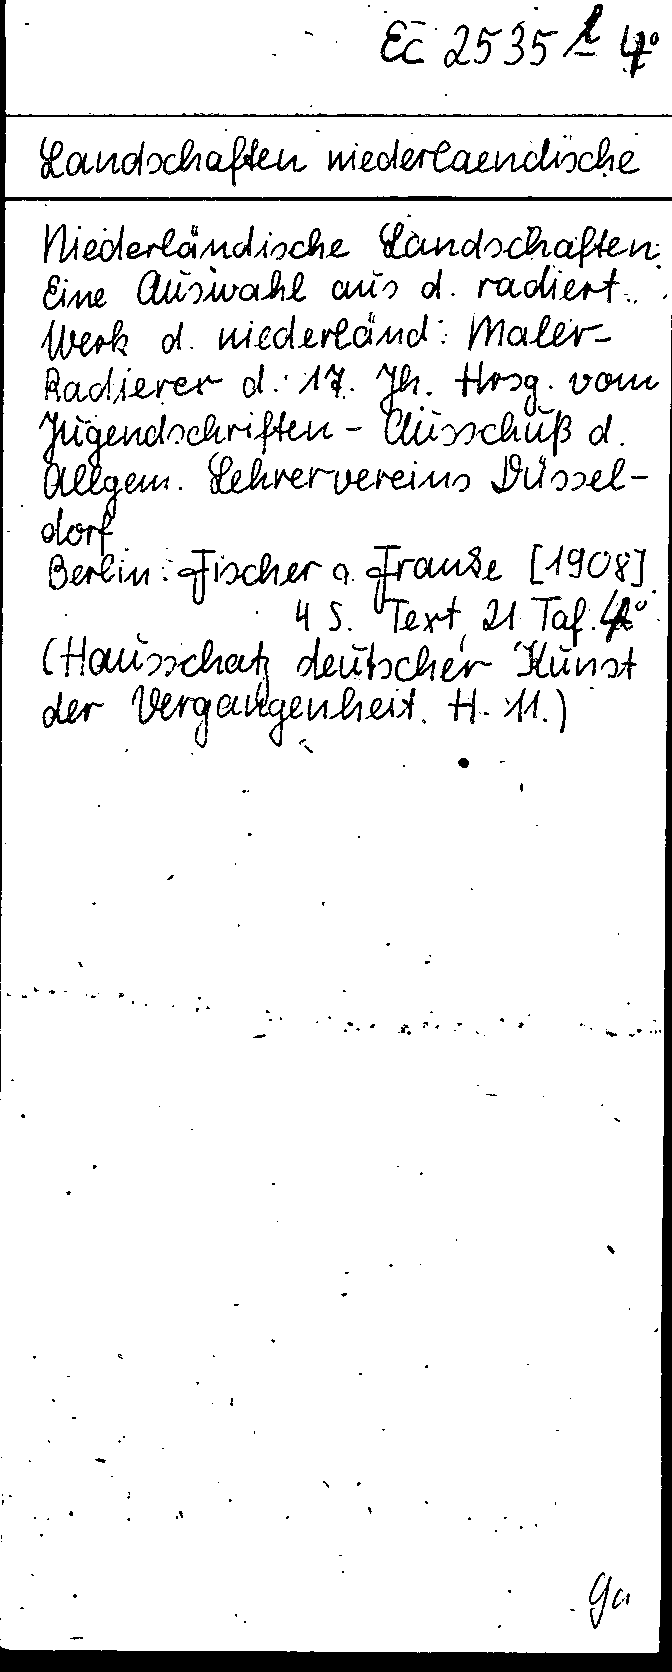 Ec 2535 l 4°
Landschaften niederlaendische
Niederländische Landschaften.
Eine Auswahl aus d. radiert.
Werk d. niederländ. Maler-
Radierer d. 17. Jh. Hrsg. vom
Jugendschriften-Ausschuß d.
Allgem. Lehrervereins Düssel-
dorf
Berlin: Fischer a. Franke [1908]
4 S. Text, 21 Taf. 4°
(Hausschatz deutscher Kunst
der Vergangenheit. H. 11.)